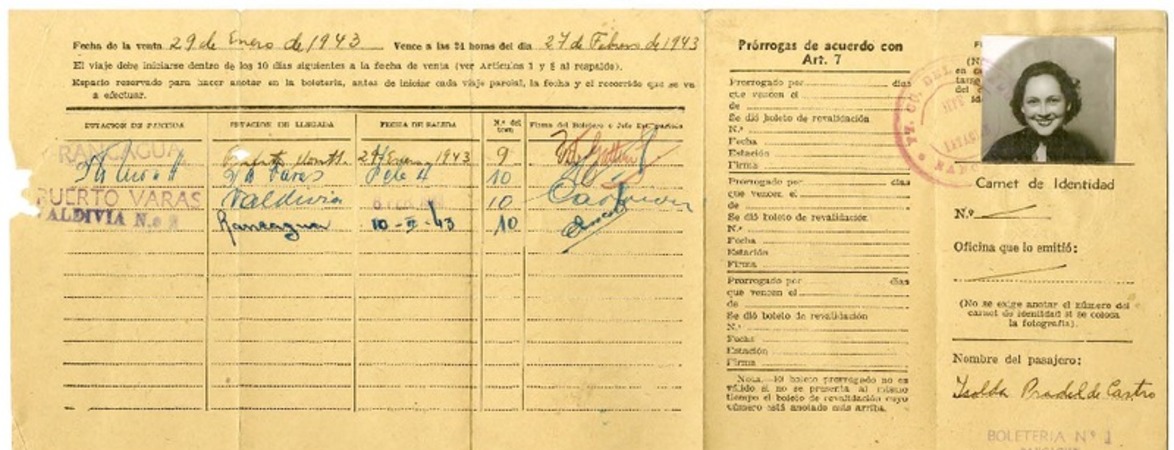 Fecha de la venta 29 de Enero de 1943 Vence a las 24 horas del día 27 de Febrero de 1943
El viaje debe iniciarse dentro de los 10 días siguientes a la fecha de venta (ver Artículos 1 y 2 al respaldo).
Espacio reservado para hacer anotar en la boletería, antes de iniciar cada viaje parcial, la fecha y el recorrido que se va
a efectuar.
ESTACION DE PARTIDA ESTACION DE LLEGADA FECHA DE SALIDA N.º del tren Firma del Boletero o Jefe Est. partida
RANCAGUA Puerto Montt 29 Enero 1943 9
10
PUERTO VARAS Valdivia 10
VALDIVIA N.o 2 Rancagua 10-II-43 10
Prórrogas de acuerdo con
Art. 7
Prorrogado por días
que vencen el
de
Se dió boleto de revalidación
N.º
Fecha
Estación
Firma
Prorrogado por días
que vencen el
de
Se dió boleto de revalidación
N.º
Fecha
Estación
Firma
Prorrogado por días
que vencen el
de
Se dió boleto de revalidación
N.º
Fecha
Estación
Firma
NOTA.—El boleto prorrogado no es
válido si no se presenta al mismo
tiempo el boleto de revalidación cuyo
número está anotado más arriba.
Carnet de Identidad
N.º
Oficina que lo emitió:
(No se exige anotar el número del
carnet de identidad si se coloca
la fotografía).
Nombre del pasajero:
Isolda Pradel de Castro
BOLETERIA Nº 1